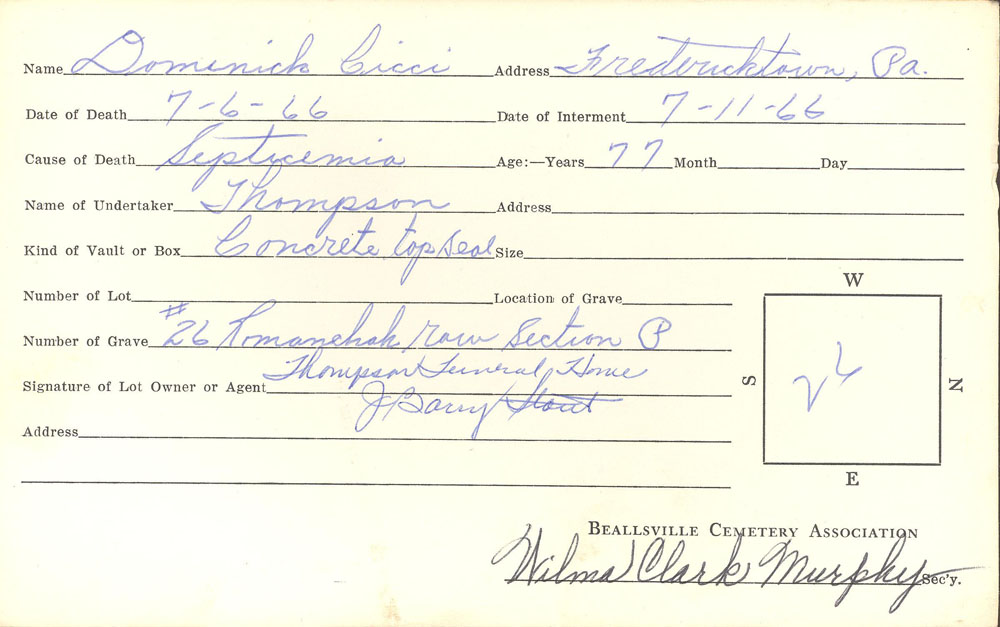 Name Dominick Cicci Address Fredericktown, Pa.
Date of Death 7-6-66 Date of Interment 7-11-66
Cause of Death Septicemia Age:—Years 77 Month Day
Name of Undertaker Thompson Address
Kind of Vault or Box Concrete top seal Size
Number of Lot Location of Grave
Number of Grave #26 Romanchak row Section P
Signature of Lot Owner or Agent Thompson Funeral Home
J Barry Stout
Address
W
S
26
N
E
BEALLSVILLE CEMETERY ASSOCIATION
Wilma Clark Murphy Sec'y.